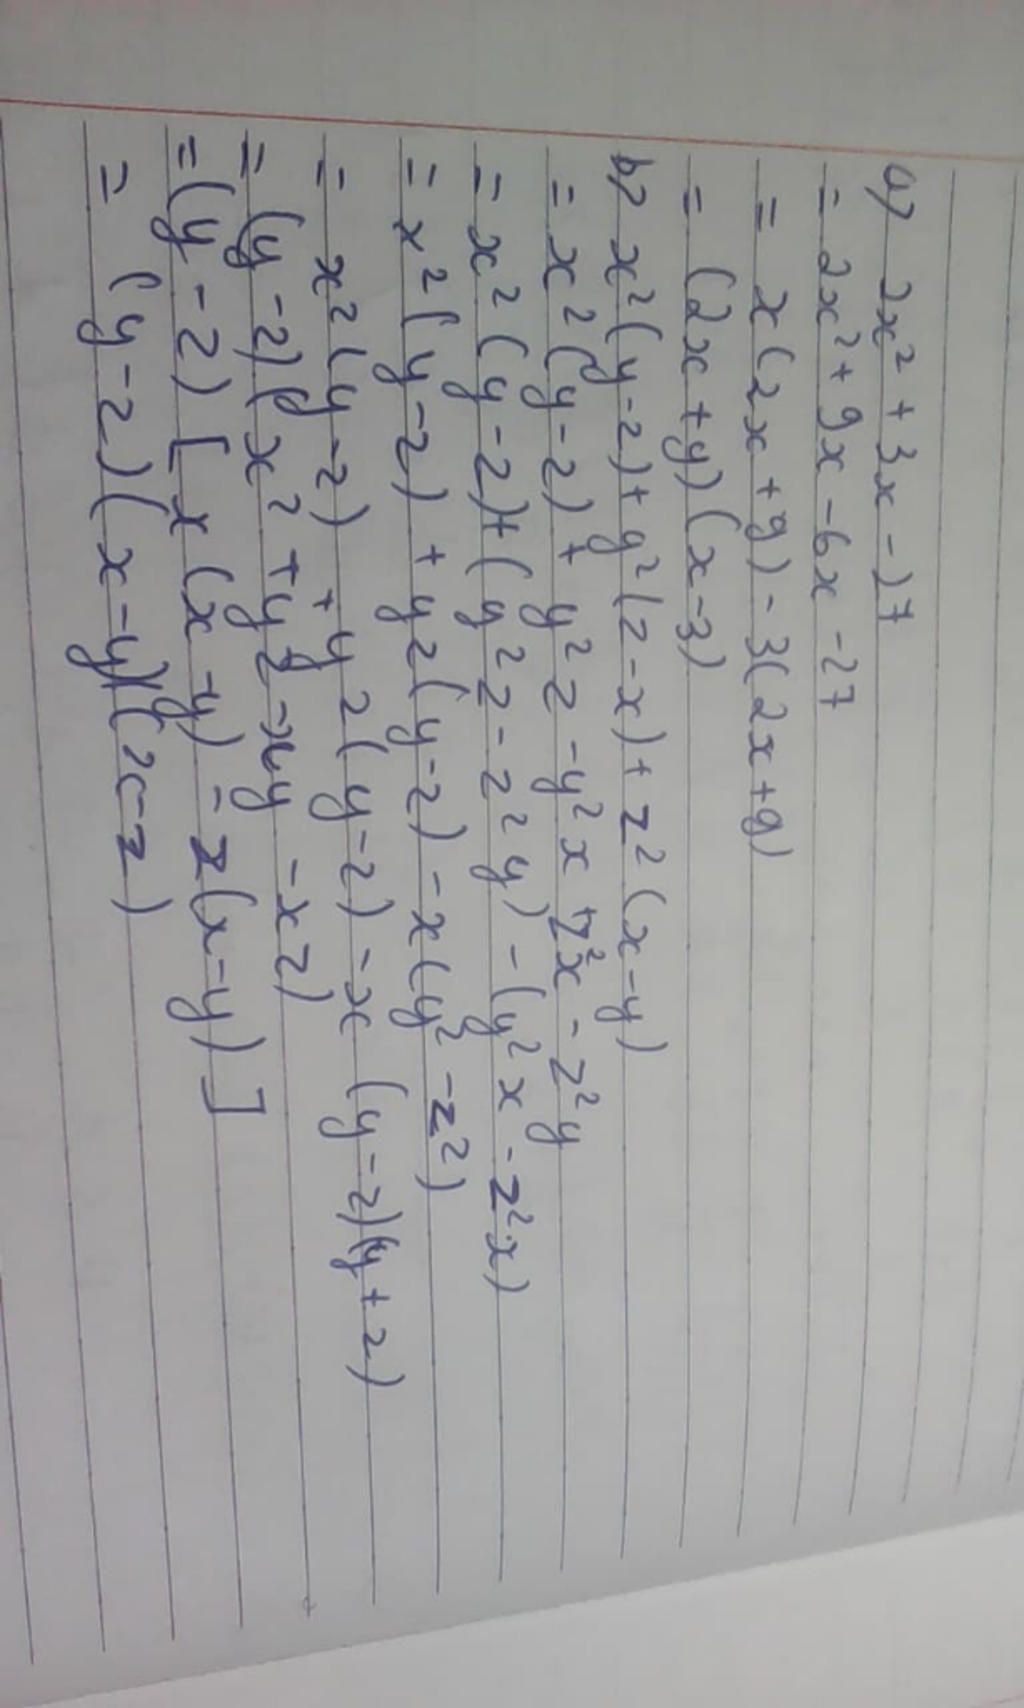 a) 2x² + 3x - 27
= 2x² + 9x - 6x - 27
= x(2x + 9) - 3(2x + 9)
= (2x + 9)(x - 3)
b) x²(y - z) + y²(z - x) + z²(x - y)
= x²(y - z) + y²z - y²x + z²x - z²y
= x²(y - z) + (y²z - z²y) - (y²x - z²x)
= x²(y - z) + yz(y - z) - x(y² - z²)
= x²(y - z) + yz(y - z) - x(y - z)(y + z)
= (y - z)(x² + yz - xy - xz)
= (y - z)[x(x - y) - z(x - y)]
= (y - z)(x - y)(x - z)